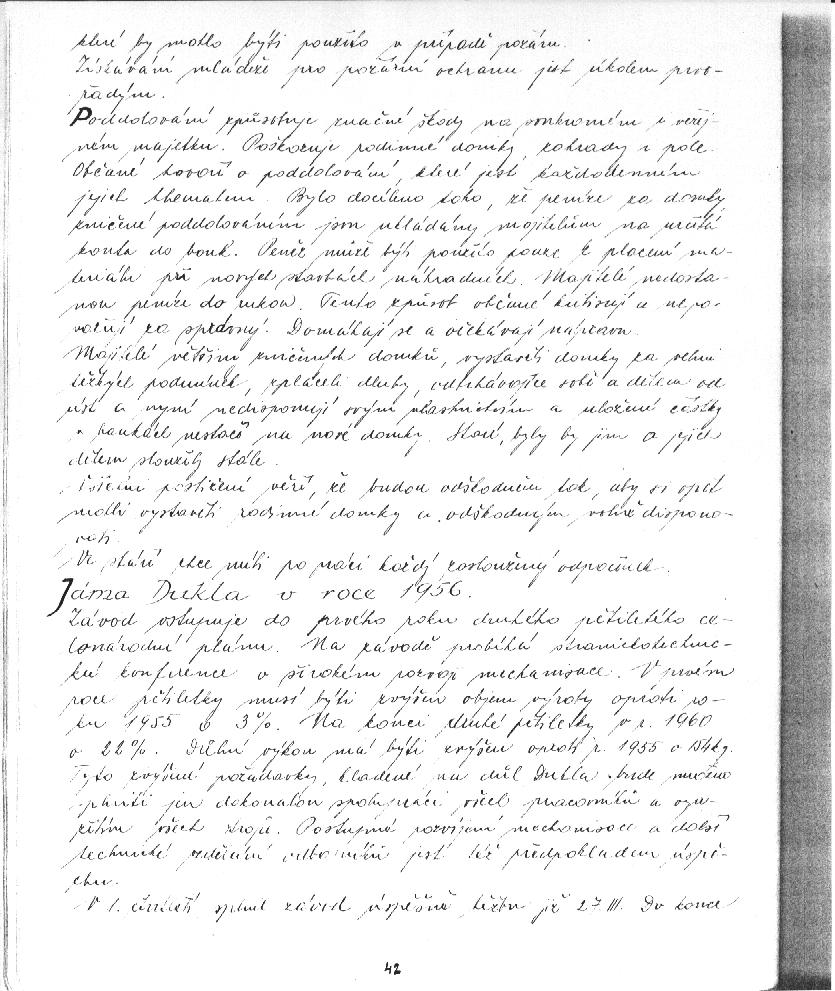 které by mohlo býti použito v případě požáru.
Získávání mládeže pro požární ochranu jest úkolem prvo-
řadým.
Poddolování způsobuje značné škody na soukromém i veřej-
ném majetku. Poškozuje rodinné domky, zahrady i pole.
Občané hovoří o poddolování, které jest každodenním
jejich thematem. Bylo docíleno toho, že peníze za domky
zničené poddolováním jsou ukládány majitelům na určitá
konta do bank. Peněz může býti použito pouze k placení ma-
teriálu při nových stavbách náhradních. Majitelé nedosta-
nou peníze do rukou. Tento způsob občané kritisují a nepo-
važují za správný. Domáhají se a očekávají nápravu.
Majitelé většinu zničených domků, vystavěli domky za velmi
těžkých podmínek, spláceli dluhy, odtrhávajíce sobě a dětem od
úst a nyní nedisponují svým vlastnictvím a uložené částky
v bankách nestačí na nové domky. Staré, byly by jim a jejich
dětem sloužily stále.
Všichni postižení věří, že budou odškodněni tak, aby si opět
mohli vystavěti rodinné domky a odškodným volně dispono-
vati.
Ve stáří chce míti po práci každý zasloužený odpočinek.
Jáma Dukla v roce 1956.
Závod vstupuje do prvého roku druhého pětiletého ce-
lonárodní plánu. Na závodě probíhá stranickotechnic-
ká konference o širokém rozvoji mechanisace. V prvém
roce pětiletky musí býti zvýšen objem výroby oproti ro-
ku 1955 o 3%. Na konci druhé pětiletky v r. 1960
o 22%. Důlní výkon má býti zvýšen oproti r. 1955 o 154 kg.
Tyto zvýšené požadavky, kladené na důl Dukla bude možno
splniti jen dokonalou spoluprací všech pracovníků a vyu-
žitím všech zdrojů. Postupné rozvíjení mechanisace a další
technické vzdělání odborníků jest též předpokladem úspě-
chu.
V 1. čtvrtletí splnil závod úspěšně těžbu již 27. III. Do konce
42